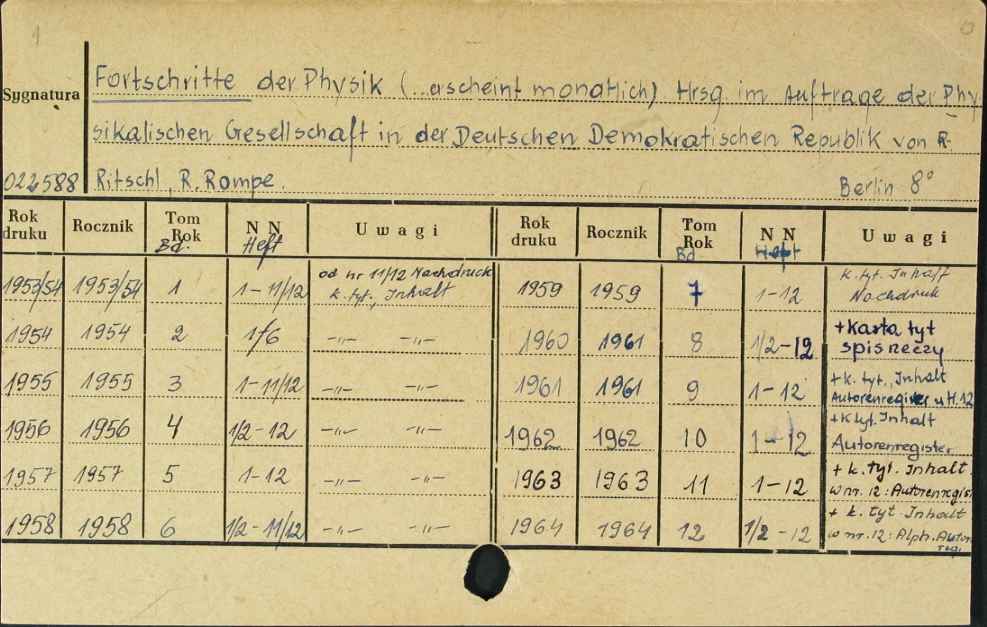 1
Sygnatura
Fortschritte der Physik (...erscheint monatlich) Hrsg im Auftrage der Phy-
sikalischen Gesellschaft in der Deutschen Demokratischen Republik von R.
022588 Ritschl, R. Rompe. Berlin 8°
Rok druku Rocznik Tom Rok Bd. NN Heft Uwagi Rok druku Rocznik Tom Rok Bd NN Heft Uwagi
1953/54 1953/54 1 1-11/12 od nr 11/12 Nachdruck k. tyt., Inhalt 1959 1959 7 1-12 k. tyt. Inhalt Nachdruk
1954 1954 2 1/6 -„- -„- 1960 1961 8 1/2-12 + karta tyt spis rzeczy
1955 1955 3 1-11/12 -„- -„- 1961 1961 9 1-12 + k. tyt., Inhalt Autorenregister w H.12
1956 1956 4 1/2-12 -„- -„- 1962 1962 10 1-12 + k tyt. Inhalt Autorenregister
1957 1957 5 1-12 -„- -„- 1963 1963 11 1-12 + k. tyt. Inhalt. w nr. 12: Autorenregis
1958 1958 6 1/2-11/12 -„- -„- 1964 1964 12 1/2-12 + k. tyt Inhalt w nr. 12: Alph. Autor regi